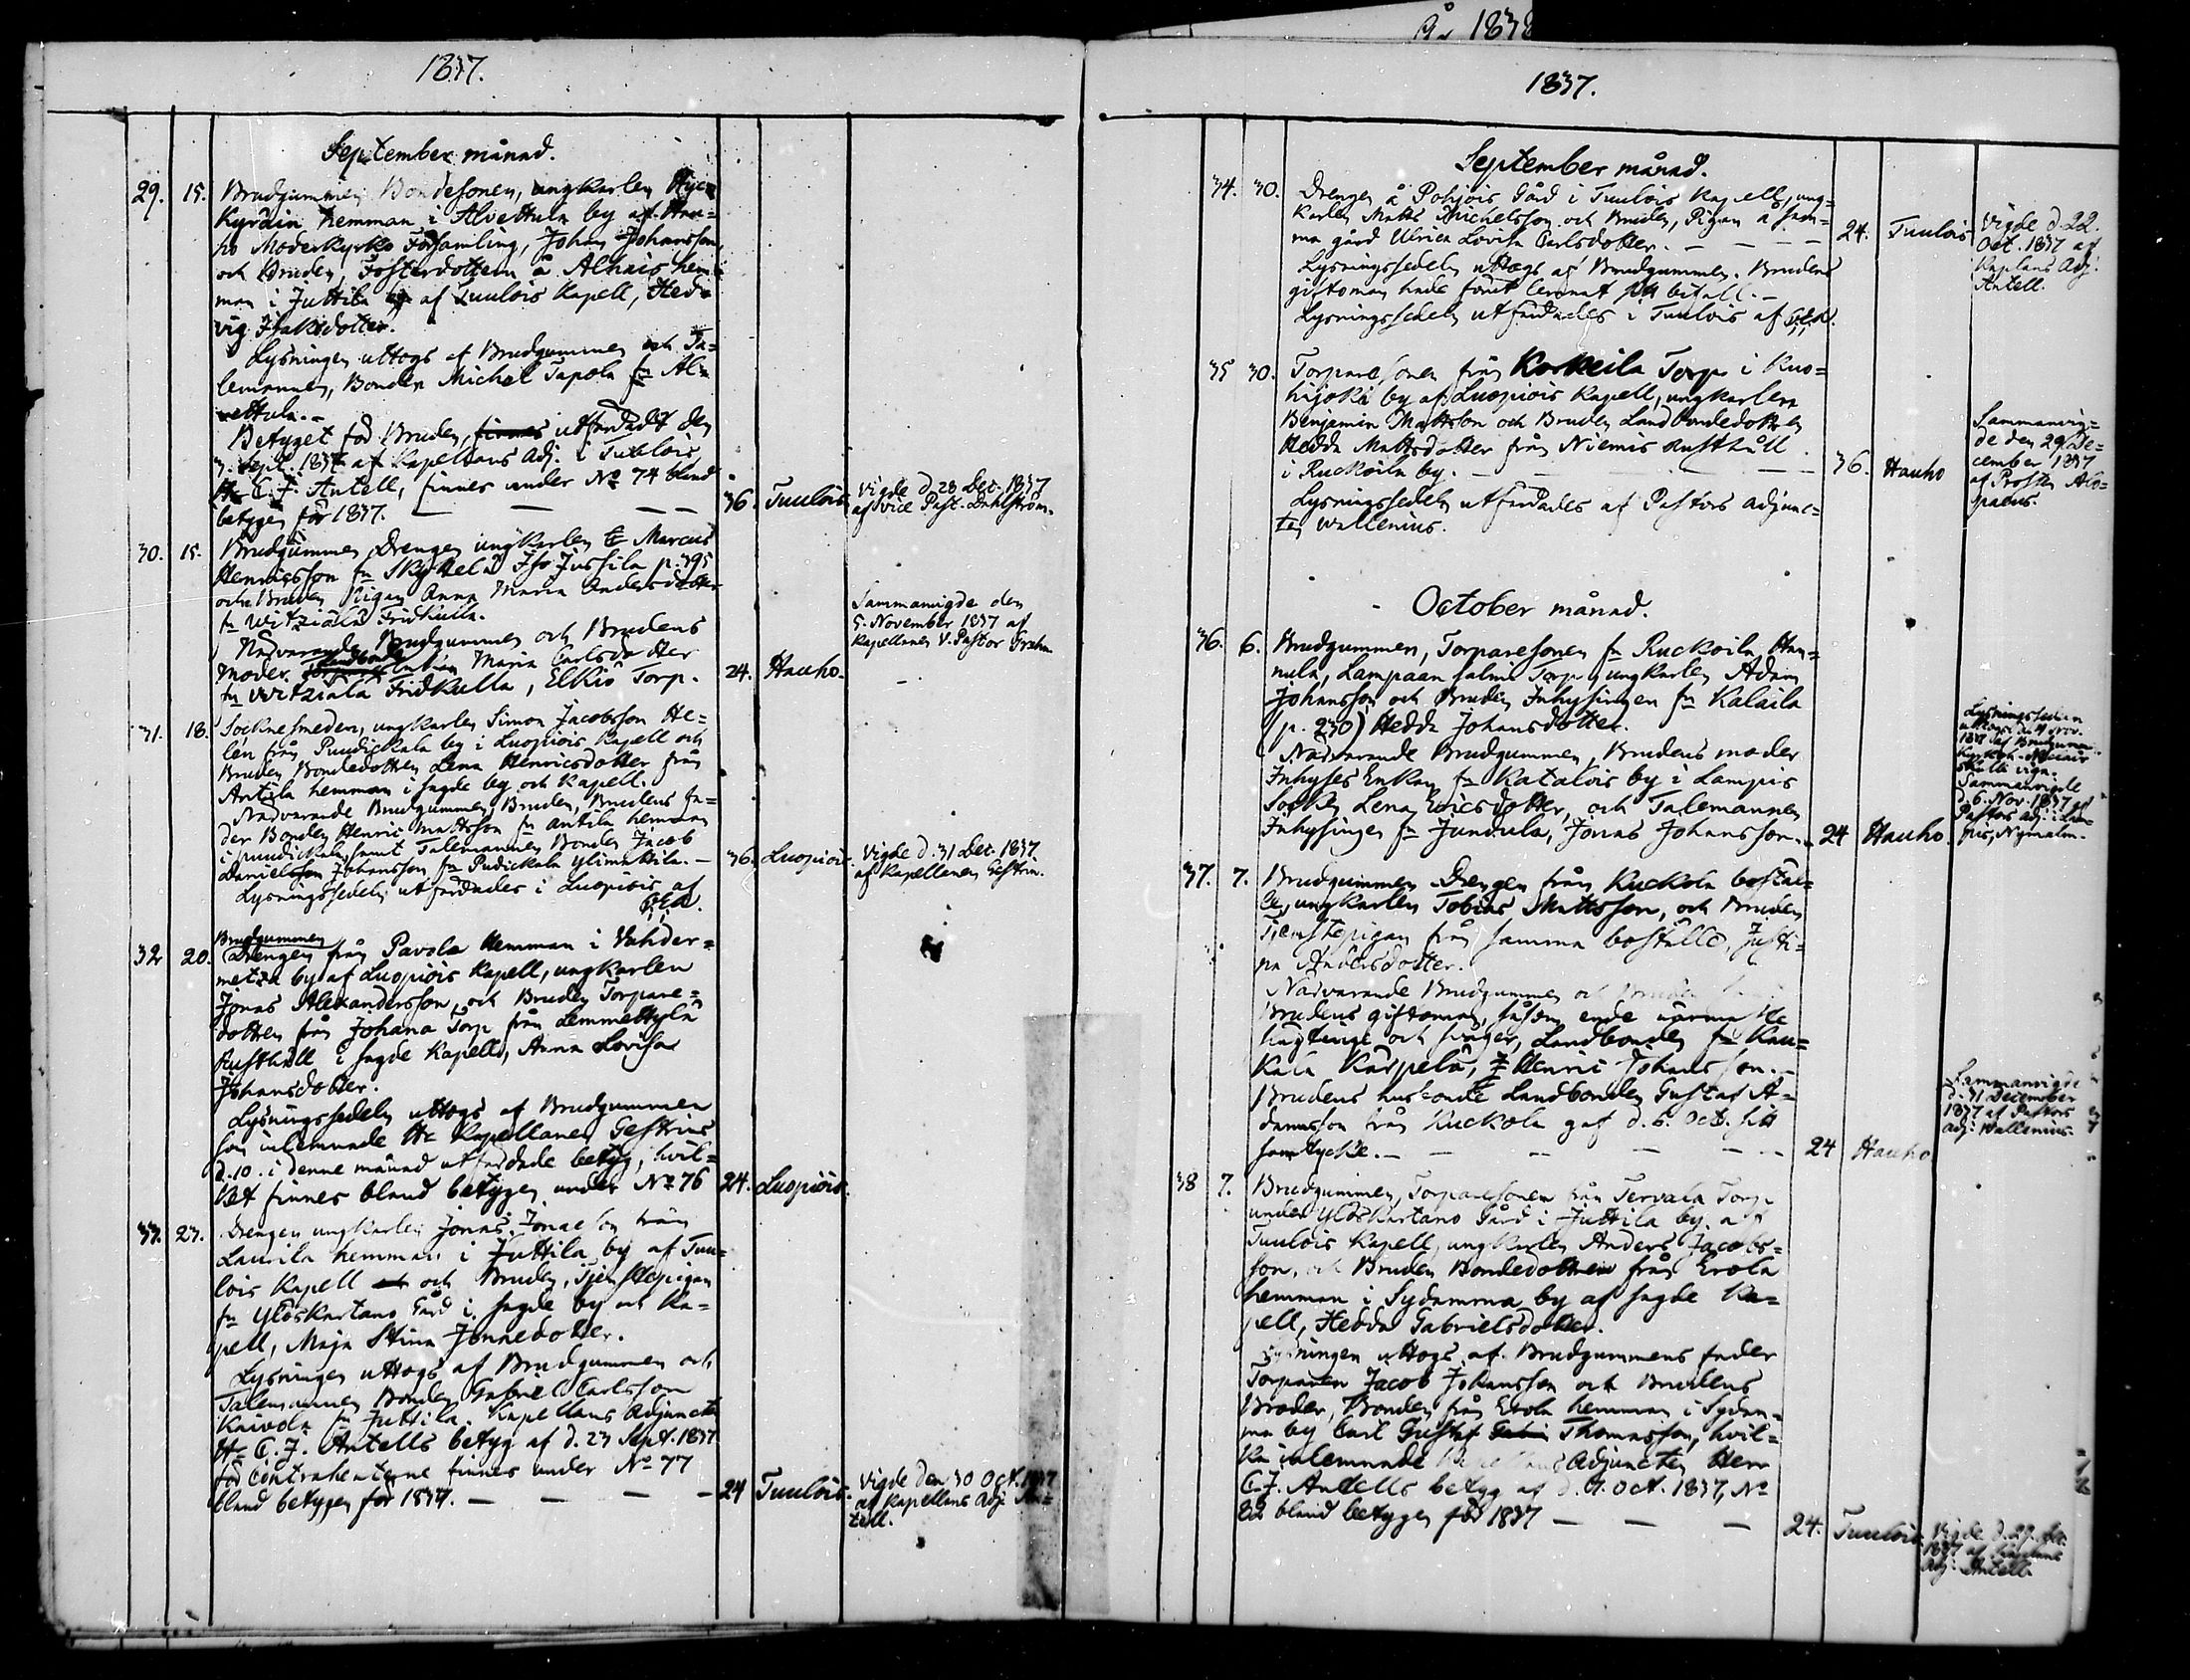 År 1838
1837.
September månad.
29. 15. Brudgummen Bondesonen, ungkarlen
Kyrdin hemman i Alvettula by af Hau=
ho Moderkyrko Församling, Johan Johansson,
och Bruden, Fosterdottern å Alhais hem=
man i Juttila by af Tuulois Kapell, Hed=
vig Isaksdotter.
Lysningen uttogs af Brudgummen och Ta=
lemannen, Bonden Michel Tapola fn Al=
vettula.-
Betyget för Bruden, finnes utfärdadt den
7. Sept. 1837 af Kapellans Adj. i Tuulois,
Hr C. J. Antell, finnes under No 74 bland
betygen för 1837. — — — 36. Tuulois. Vigde d 28 Dec. 1837
af Vice Past. Dahlström.
30. 15. Brudgummen Drengen ungkarlen Marcus
Henricsson fn Skyttelä Iso Jussila p. 395
och Bruden Pigan Anna Maria Andersdotter
fn Vitziälä Fridkulla.
Närvarande Brudgummen och Brudens
Moder Landbonde Enkan Maria Carlsdotter
fn Vitziälä Fridkulla, Elkiö Torp. 24. Hauho.
Sammanvigde den
5. November 1837 af
Kapellanen V. Pastor
31. 18. Socknesmeden, ungkarlen Simon Jacobsson He=
lén från Puudickala by i Luopiois Kapell och
Bruden Bondedottren Lena Henricsdotter från
Antila hemman i sagde by och Kapell.
Närvarande Brudgummen, Bruden, Brudens fa=
der Bonden Henric Mattsson fn Antila hemman
i Puudickala, samt Talemannen Bonden Jacob
Danielsson Johansson fn Pudickala Ylimattila.—
Lysningssedeln utfärdades i Luopiois af
G.E.A. 36. Luopiois. Vigde d. 31 Dec. 1837
af Kapellanen Gestrin.
32 20. Brudgummen
Drengen från Pavola Hemman i Vahder=
metza by af Luopiois Kapell, ungkarlen
Jonas Alexandersson, och Bruden Torpare=
dottren från Johana Torp från Lemmettylä
Rusthåll i sagde Kapell, Anna Lovisa
Johansdotter.
Lysningssedeln uttogs af Brudgummen
som inlemnade Hr Kapellanen Gestrins
d. 10. i denne månad utfärdade betyg, hvil=
ket finnes bland betygen under No 76 24. Luopiois.
33. 23. Drengen ungkarlen Jonas Jonaeson från
Laurila hemman i Juttila by af Tuu=
lois Kapell och Bruden, Tjenstepigan
fn Yloskartano Gård i sagde by och Ka=
pell, Maja Stina Jonaedotter.
Lysningen uttogs af Brudgummen och
Talemannen Bonden Gabriel Carlsson
Kaivola fn Juttila. Kapellans Adjuncten
Hr C. J. Antells betyg af d. 23 Sept. 1837
för Contrahenterne finnes under No 77
bland betygen för 1837. — — — 24 Tuulois. Vigde den 30 Oct. 1837
af Kapellans Adj. An=
tell.
1837.
September månad.
34. 30. Drengen å Pohjois Gård i Tuulois Kapell, ung=
karlen Matts Michelsson och Bruden, Pigan å sam=
ma gård Ulrica Lovisa Carlsdotter. — — —
Lysningssedeln uttogs af Brudgummen. Brudens
giftoman hade förut lemnat sitt bifall.—
Lysningssedeln utfärdades i Tuulois af G.E.A.
24. Tuulois Vigde d. 22.
Oct. 1837 af
Kaplans Adj.
Antell.
35 30. Torparesonen från Korkeila Torp i Kuo=
hijoki by af Luopiois Kapell, ungkarlen
Benjamin Mattsson och Bruden Landbondedottren
Hedda Mattsdotter från Niemis Rusthåll
i Ruckoila by. — — — 36. Hauho
Lysningssedeln utfärdades af Pastors Adjunc=
ten Wallenius.
Sammanvig=
de den 29 De=
cember 1837
af Prosten Alo=
paeus.
October månad.
36. 6. Brudgummen, Torparesonen fn Ruckoila, Han=
nula, Lampaan salmi Torp, ungkarlen Adam
Johansson och Bruden Inhysingen fn Kalaila
(p. 230) Hedda Johansdotter.
Närvarande Brudgummen, Brudens moder
Inhyses Enkan fn Katalois by i Lampis
Socken Lena Ericsdotter, och Talemannen
Inhysingen fn Jundula, Jonas Johansson.— 24 Hauho.
Lysningssedeln
uttogs d. 4 Nov.
1837 af Brudgummen
viga.
Sammanvigde
d. 6. Nov. 1837 af
Pastors Adj. i Lam=
pis, Nymalm.
37. 7. Brudgummen Drengen från Kuckola bostäl=
le, ungkarlen Tobias Mattsson, och Bruden
Tjenstepigan från samma boställe, Justi=
na Andersdotter.
Närvarande Brudgummen och Bruden
Brudens giftoman, såsom ende närmaste
slägtinge och svåger, Landbonden fn Kau=
kala Kärpelä, Henric Johansson.—
Brudens husbonde Landbonden Gustaf A=
damsson från Kuckola gaf d. 6. Oct. sitt
samtycke.— — — — 24 Hauho
Sammanvigde
d. 31 December
1837 af Pastors
Adj. Wallenius.
38 7. Brudgummen, Torparesonen från Tervala Torp
under Yloskartano Gård i Juttila by af
Tuulois Kapell, ungkarlen Anders Jacobs=
son, och Bruden Bondedottren från Erola
hemman i Sydänmaa by af sagde Ka=
pell, Hedda Gabrielsdotter.
Lysningen uttogs af Brudgummens fader
Torparen Jacob Johansson och Brudens
Broder, Bonden från Erola hemman i Sydän=
maa by Carl Gustaf Thomasson, hvil=
ka inlemnade Kapellans Adjuncten Herr
C. J. Antells betyg af d. 7. Oct. 1837, No
82 bland betygen för 1837 — — — 24. Tuulois. Vigde d. 29. Dec.
1837 af Kapellans
Adj. Antell.